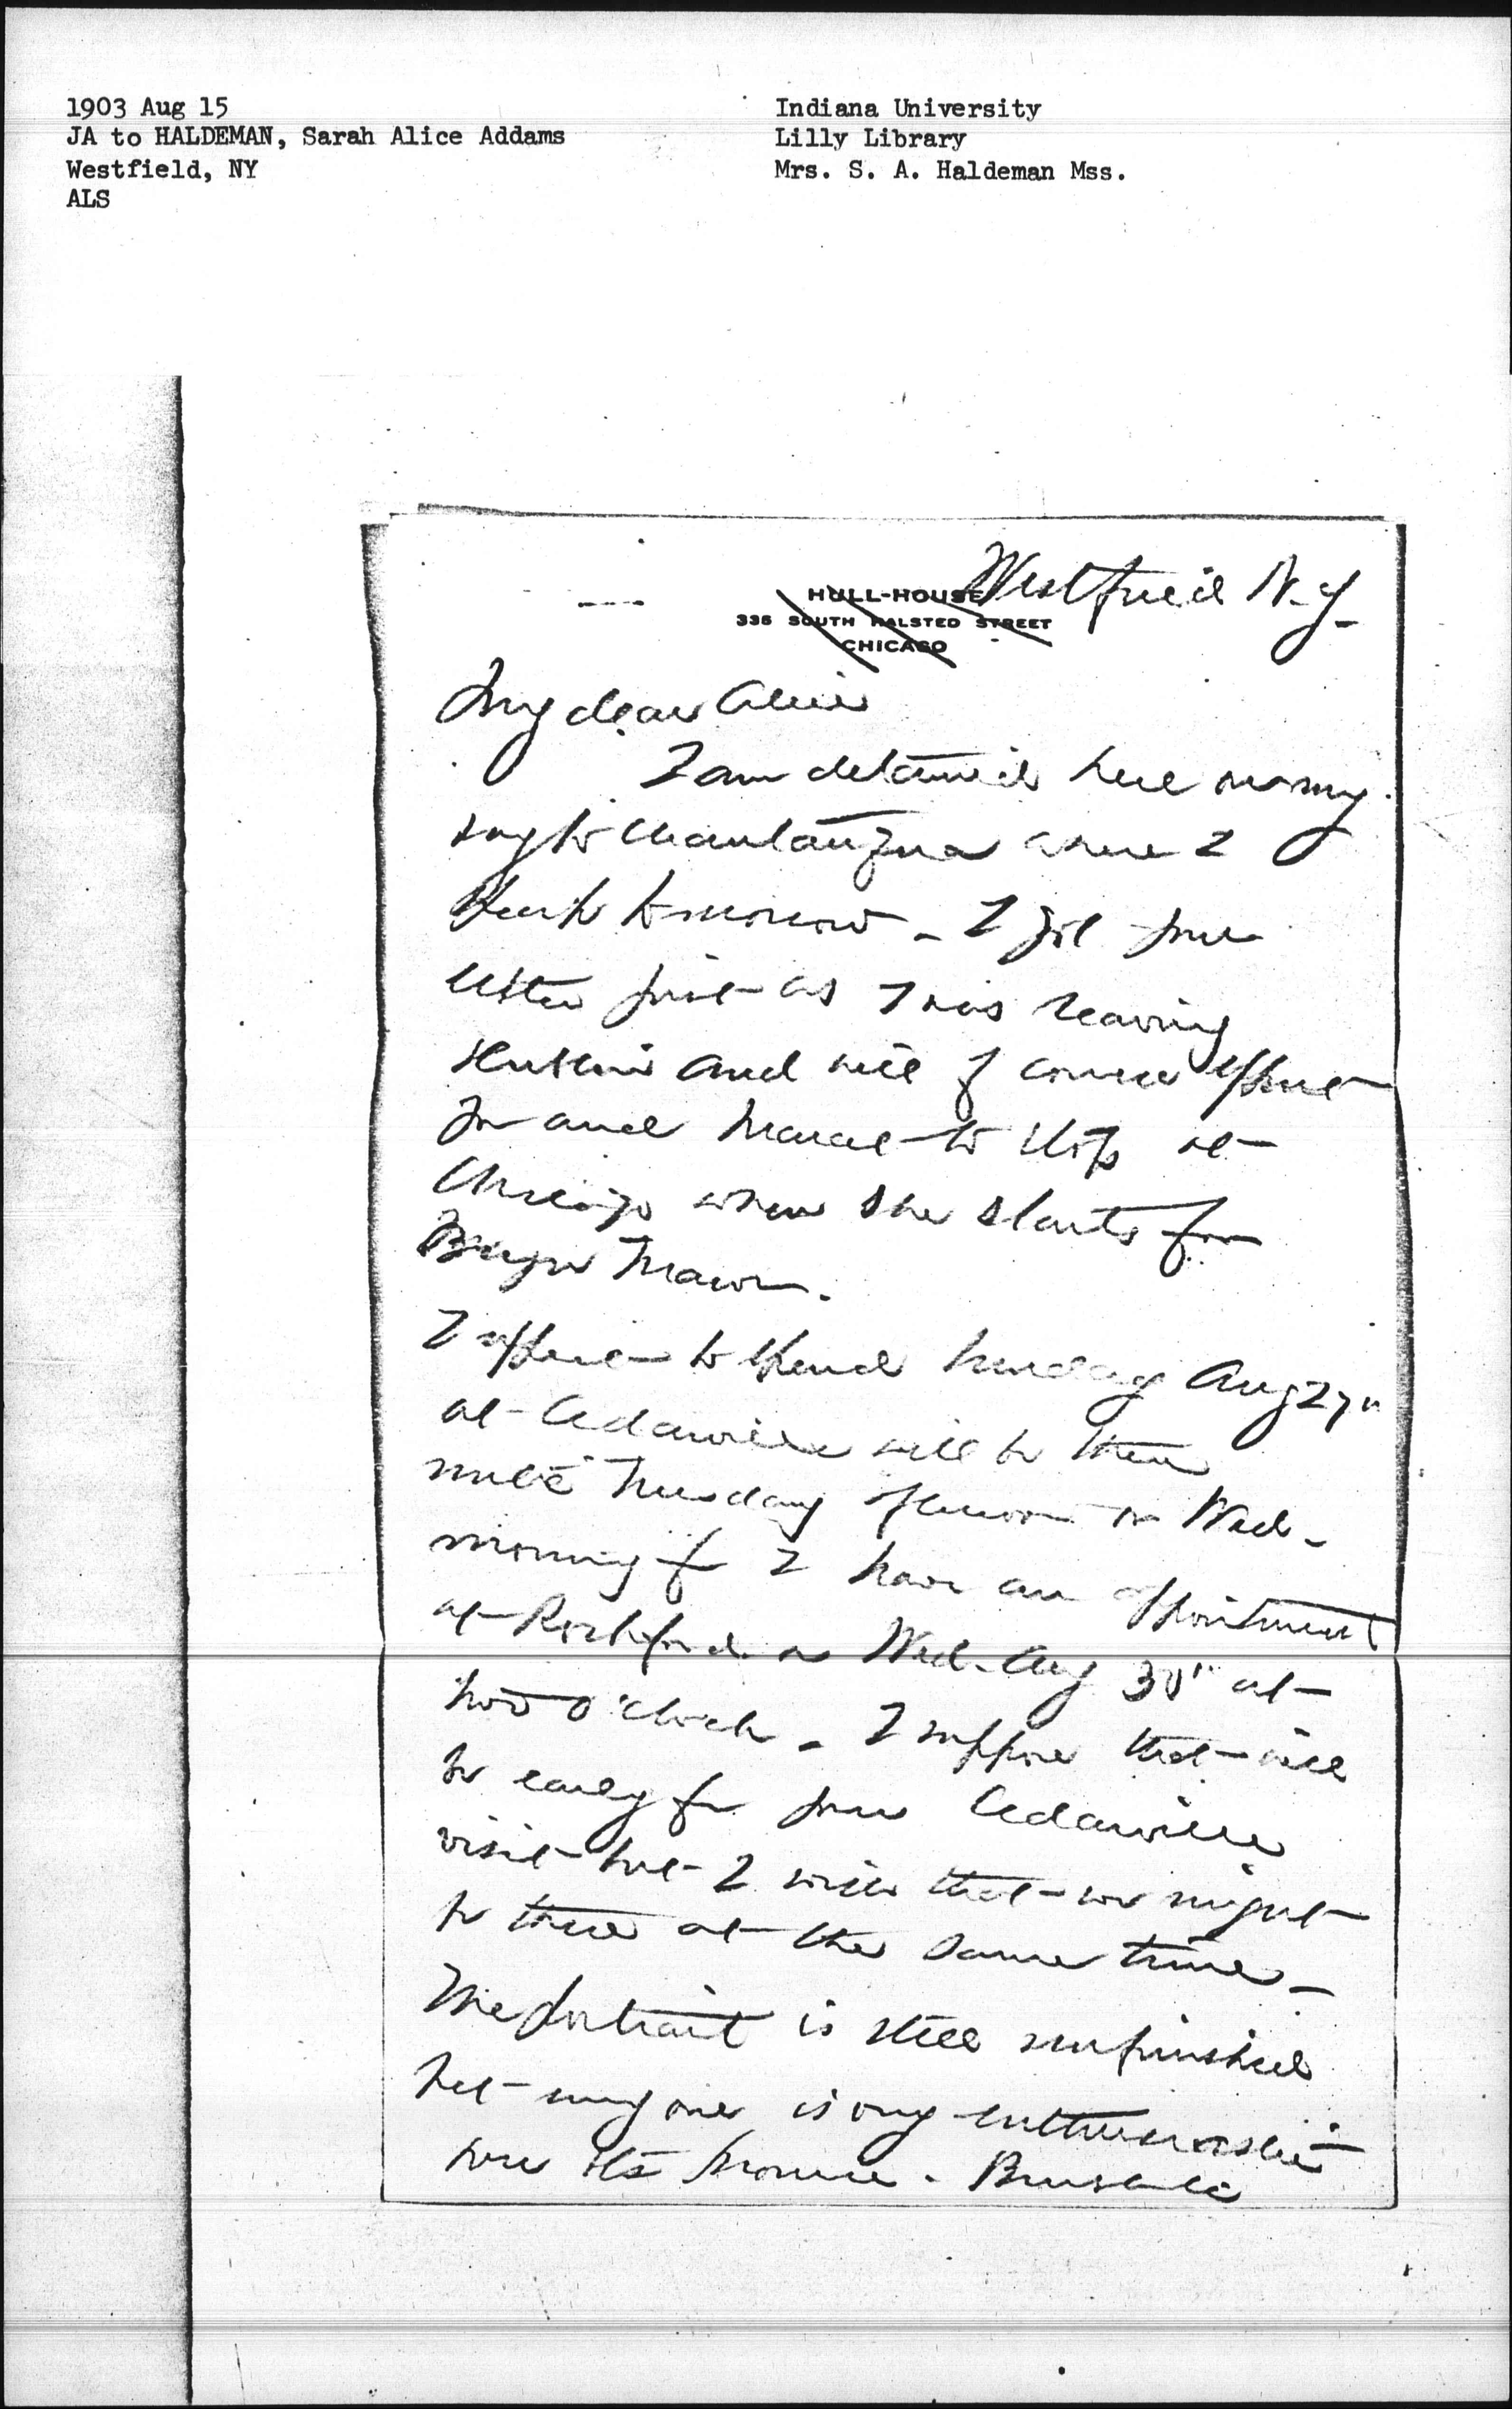 1903 Aug 15
JA to HALDEMAN, Sarah Alice Addams
Westfield, NY
ALS
Indiana University
Lilly Library
Mrs. S. A. Haldeman Mss.
Westfield N.Y.
HULL-HOUSE
335 SOUTH HALSTED STREET
CHICAGO
My dear Alice
I am detained here on my
way to Chautauqua where I
speak tomorrow - I got your
letter just as I was leaving
and will of course expect
you and Marcet to stop at
Chicago when she starts for
Bryn Mawr.
I expect to spend Sunday Aug 27"
at Cedarville will be there
until Tuesday afternoon or Wed -
morning for I have an appointment
at Rockford on Wed. Aug 30" at
two o'clock - I suppose that will
be early for your Cedarville
visit but I wish that we might
be there at the same time -
The portrait is still unfinished
but every one is very enthusiastic
over its promise.